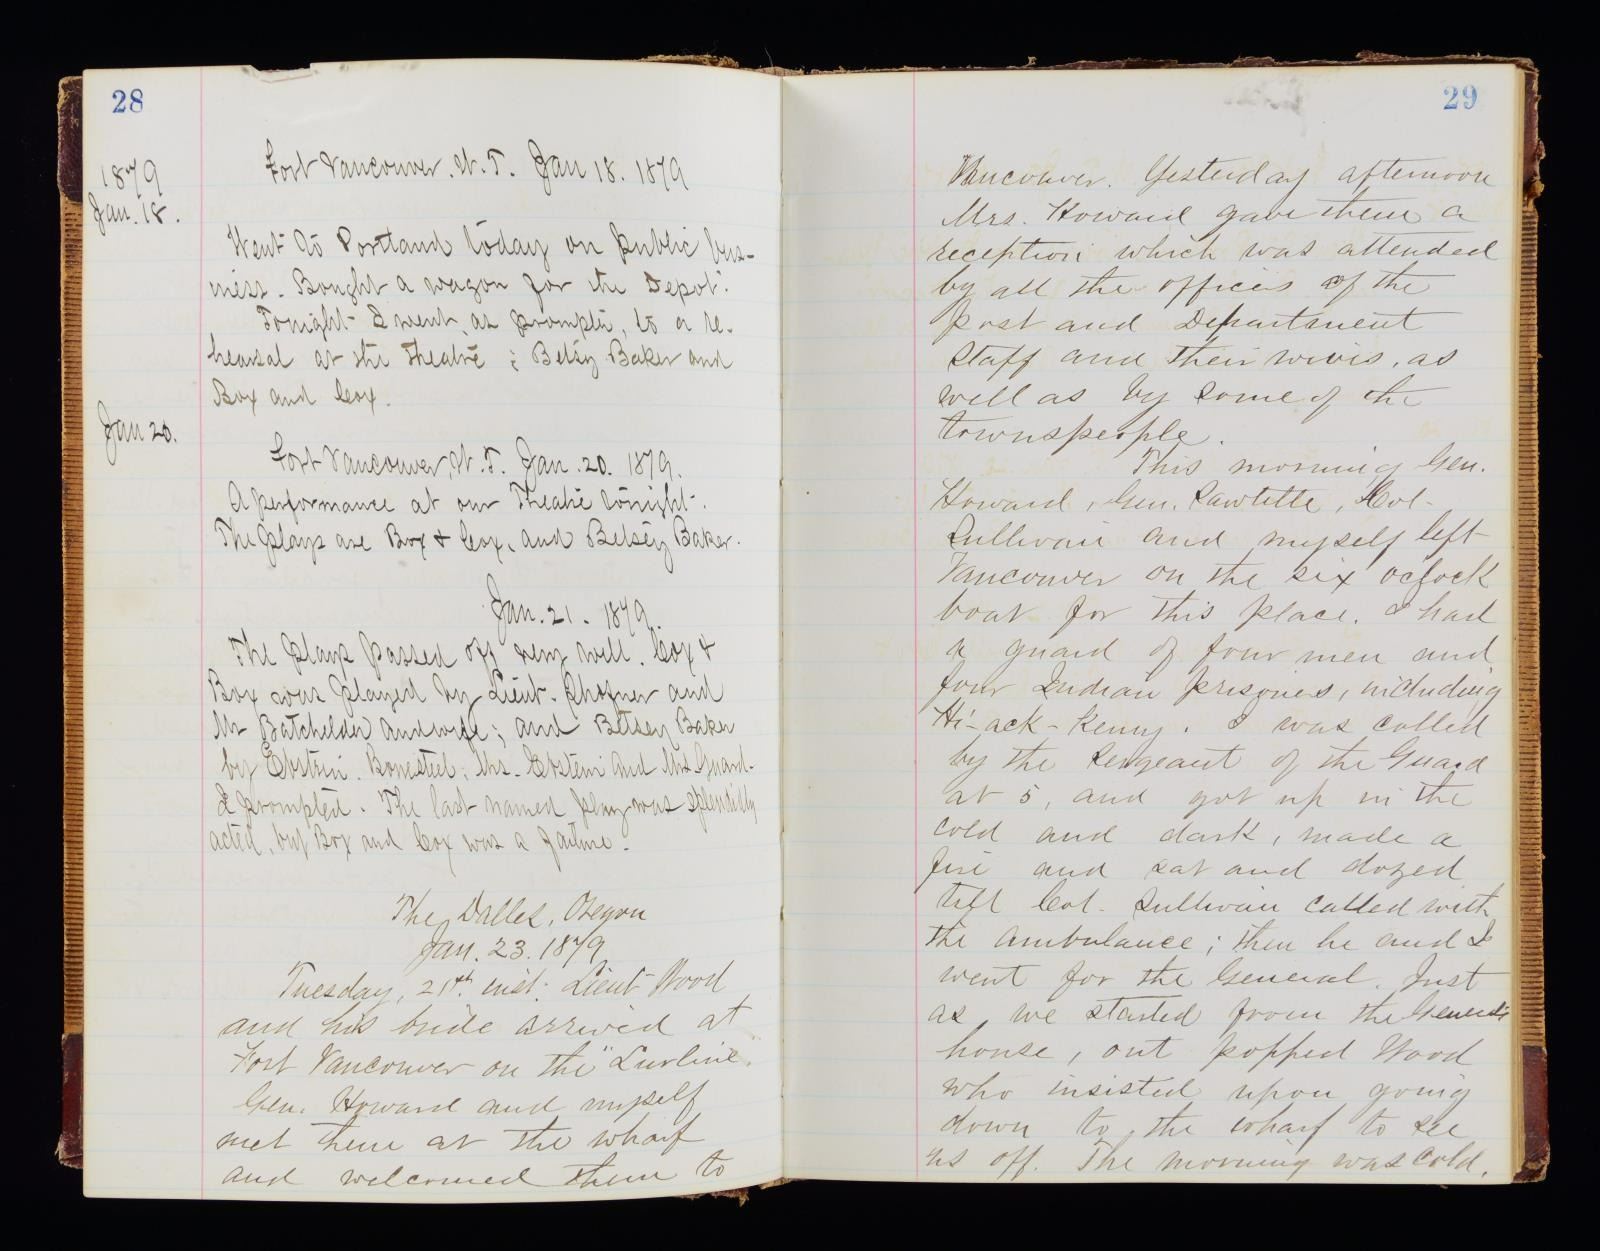 28
1879
Jan. 18.
Fort Vancouver. W. T. Jan 18. 1879
Went to Portland today on public bus-
iness. Bought a wagon for the Depot.
Tonight I went, as prompter, to a re-
hearsal at the Theatre; Betsy Baker and
Box and Cox.
Jan 20.
Fort Vancouver, W. T. Jan. 20. 1879.
A performance at our Theatre tonight.
The plays are Box & Cox, and Betsey Baker.
Jan. 21. 1879.
The plays passed off very well. Cox &
Box was played by Lieut. Shofner and
Mr Batchelder and wife; and Betsey Baker
by Ebstein. Bonesteel; Mrs. Ebstein and Mrs. Guard.
I prompted. The last named play was splendidly
acted, but Box and Cox was a failure.
The Dalles, Oregon
Jan. 23. 1879
Tuesday, 21st. inst. Lieut Wood
and his bride arrived at
Fort Vancouver on the "Lurline".
Gen. Howard and myself
met them at the wharf
and welcomed them to
29
Vancouver. Yesterday afternoon
Mrs. Howard gave them a
reception which was attended
by all the officers of the
post and Department
Staff and their wives, as
well as by some of the
townspeople.
This morning Gen.
Howard, Gen. Sawtelle, Col.
Sullivan and myself left
Vancouver on the six oclock
boat for this place. I had
a guard of four men and
four Indian prisoners, including
Hi-ack-Kenny. I was called
by the Sergeant of the Guard
at 5, and got up in the
cold and dark, made a
fire and sat and dozed
till Col. Sullivan called with
the ambulance; then he and I
went for the General. Just
as we started from the Generals
house, out popped Wood
who insisted upon going
down to the wharf to see
us off. The morning was cold,